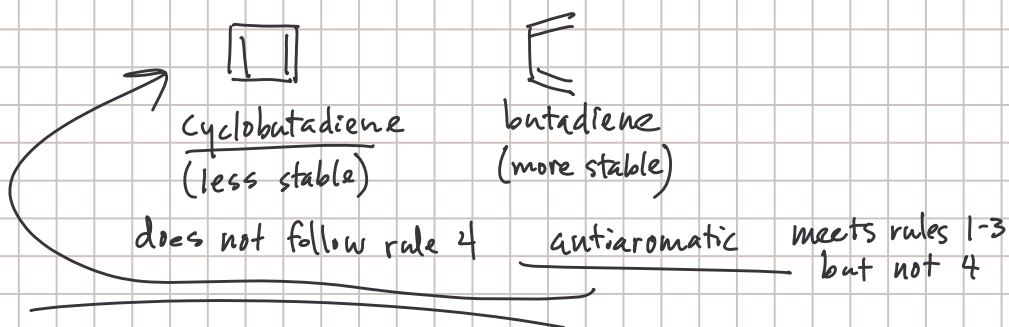 cyclobutadiene
(less stable)
butadiene
(more stable)
does not follow rule 4
antiaromatic
meets rules 1-3
but not 4